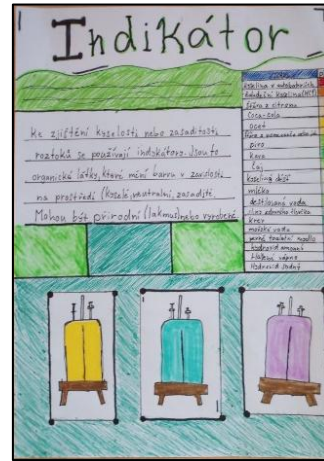 Indikátor
Ke zjištění kyselosti nebo zásaditosti
roztoků se používají indikátory. Jsou to
organické látky, které mění barvu v závislosti
na prostředí (kyselé, neutrální, zásadité).
Mohou být přírodní (lakmus) nebo vyrobené
Kyselina v autobateriích
žaludeční kyselina (HCl)
Šťáva z citronu
Coca-cola
Ocet
pivo
káva
čaj
kyselý déšť
mléko
destilovaná voda
krev
mořská voda
hydroxid amonný
hašené vápno
Hydroxid sodný